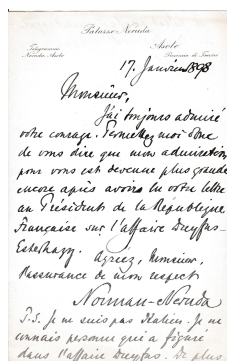 Palazzo Neruda
Telegramme
Neruda Asolo
Asolo
Provincia di Treviso
17. Janvier 1898
Monsieur,
J'ai toujours admiré
votre courage. Permettez moi donc
de vous dire que mon admiration
pour vous est devenue plus grande
encore après avoir lu votre lettre
au Président de la République
Française sur l'affaire Dreyfus-
Esterhazy.
Agréez, Monsieur,
l'assurance de mon respect
Norman-Neruda
P.S. Je ne suis pas Italien. Je ne
connais personne qui a figuré
dans l'affaire Dreyfus. De plus